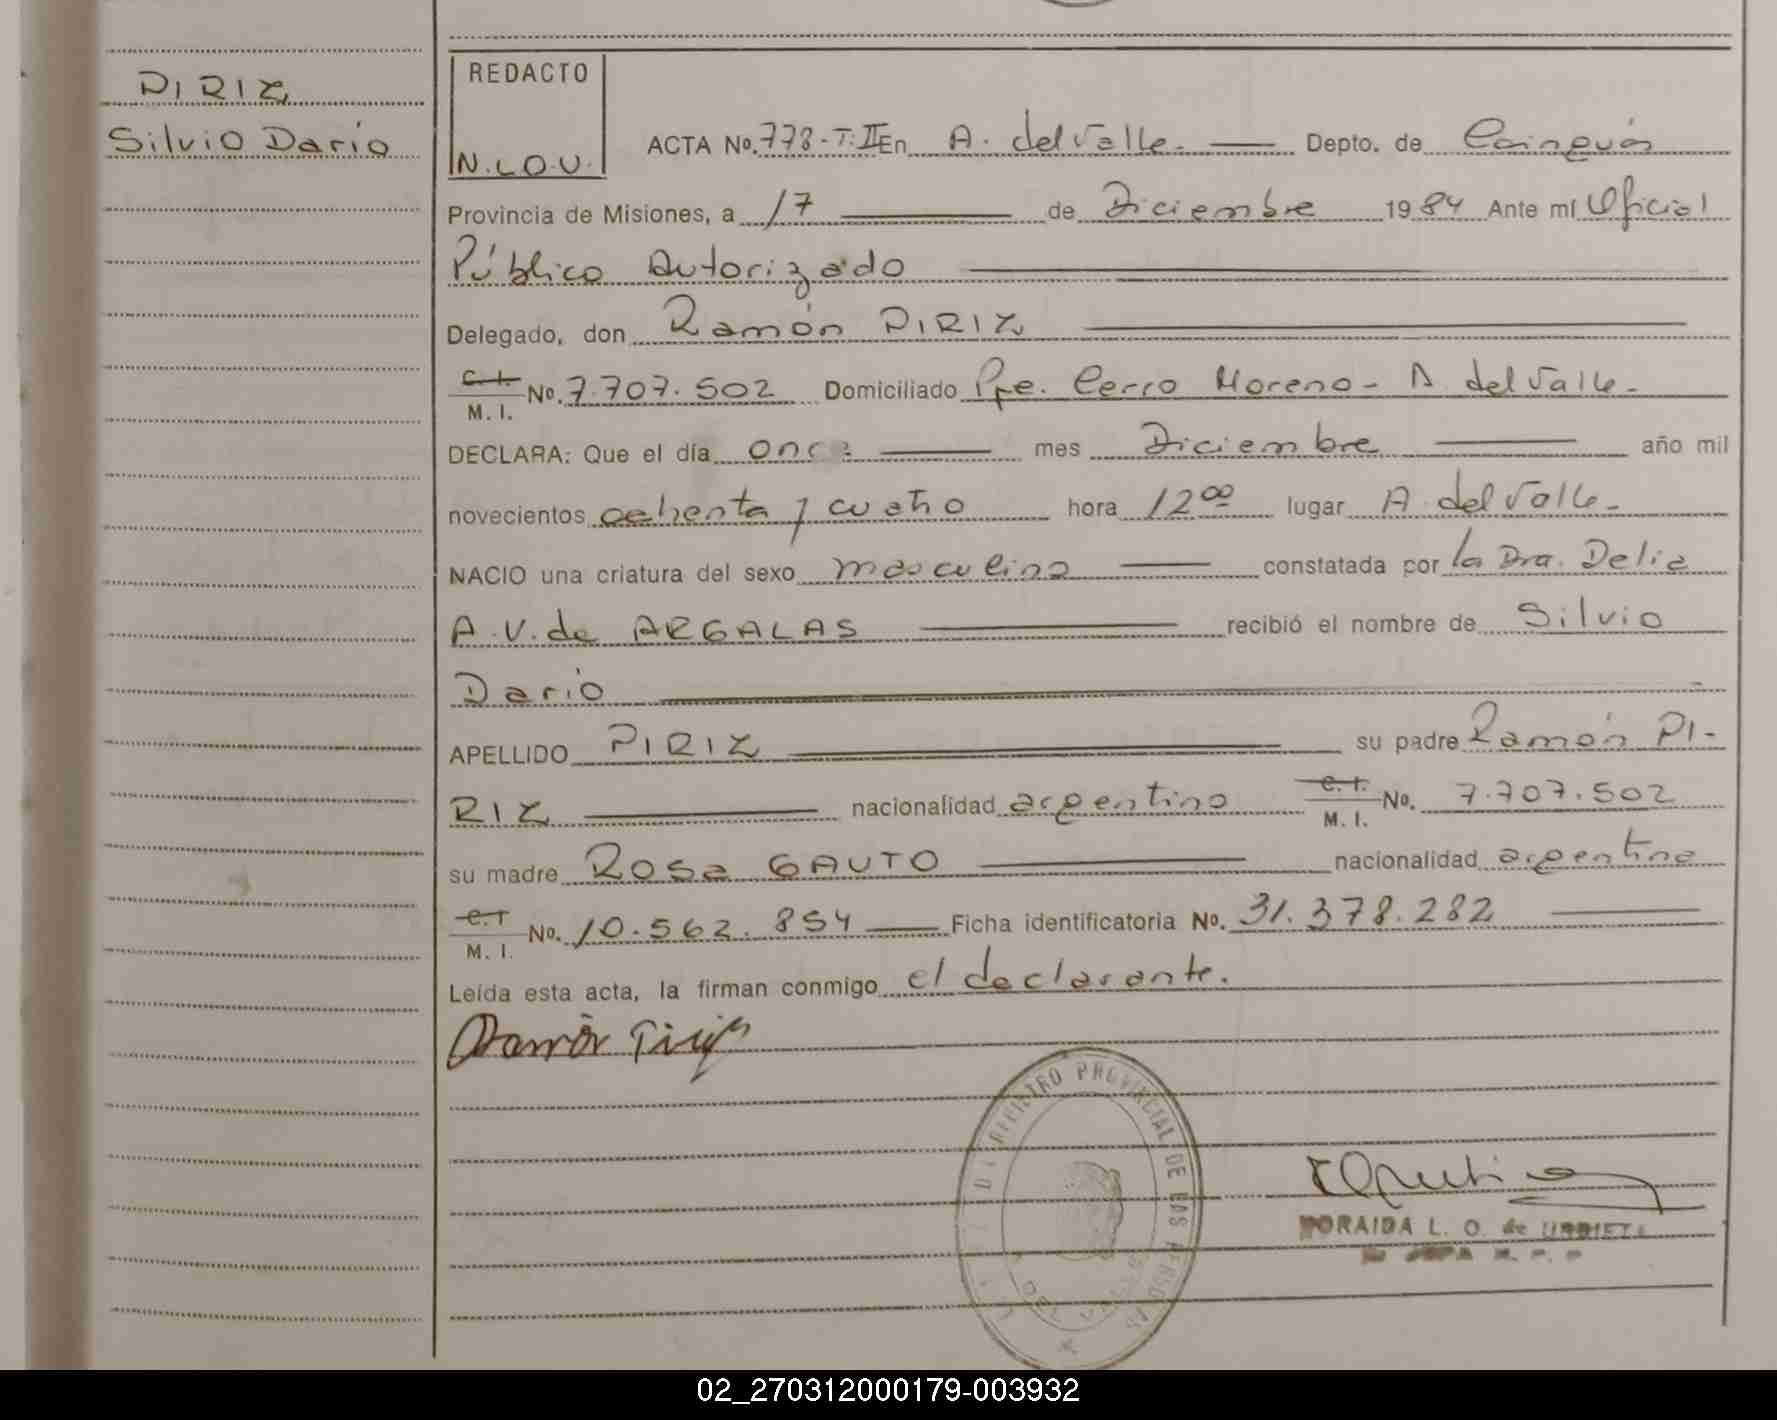 PIRIZ
Silvio Darío
REDACTO
N.L.O.U.
ACTA No. 778-T:II En A. del Valle. Depto. de Cainguás
Provincia de Misiones, a 17 de Diciembre 1984 Ante mí Oficial
Público Autorizado
Delegado, don Ramón PIRIZ
C.I.
M.I. No. 7.707.502 Domiciliado Pje. Cerro Moreno - A. del Valle -
DECLARA: Que el día once mes Diciembre año mil
novecientos ochenta y cuatro hora 12⁰⁰ lugar A. del Valle -
NACIO una criatura del sexo masculino constatada por la Dra. Delia
A.V. de ARGALAS recibió el nombre de Silvio
Darío
APELLIDO PIRIZ su padre Ramón PI-
RIZ nacionalidad argentino C.I. M.I. No. 7.707.502
su madre Rosa GAUTO nacionalidad argentina
C.I.
M.I. No. 10.562.854 Ficha identificatoria No. 31.378.282
Leída esta acta, la firman conmigo el declarante.
Ramón Piriz
REGISTRO PROVINCIAL DE LAS PERSONAS
L. O. de URRIETA
02_270312000179-003932